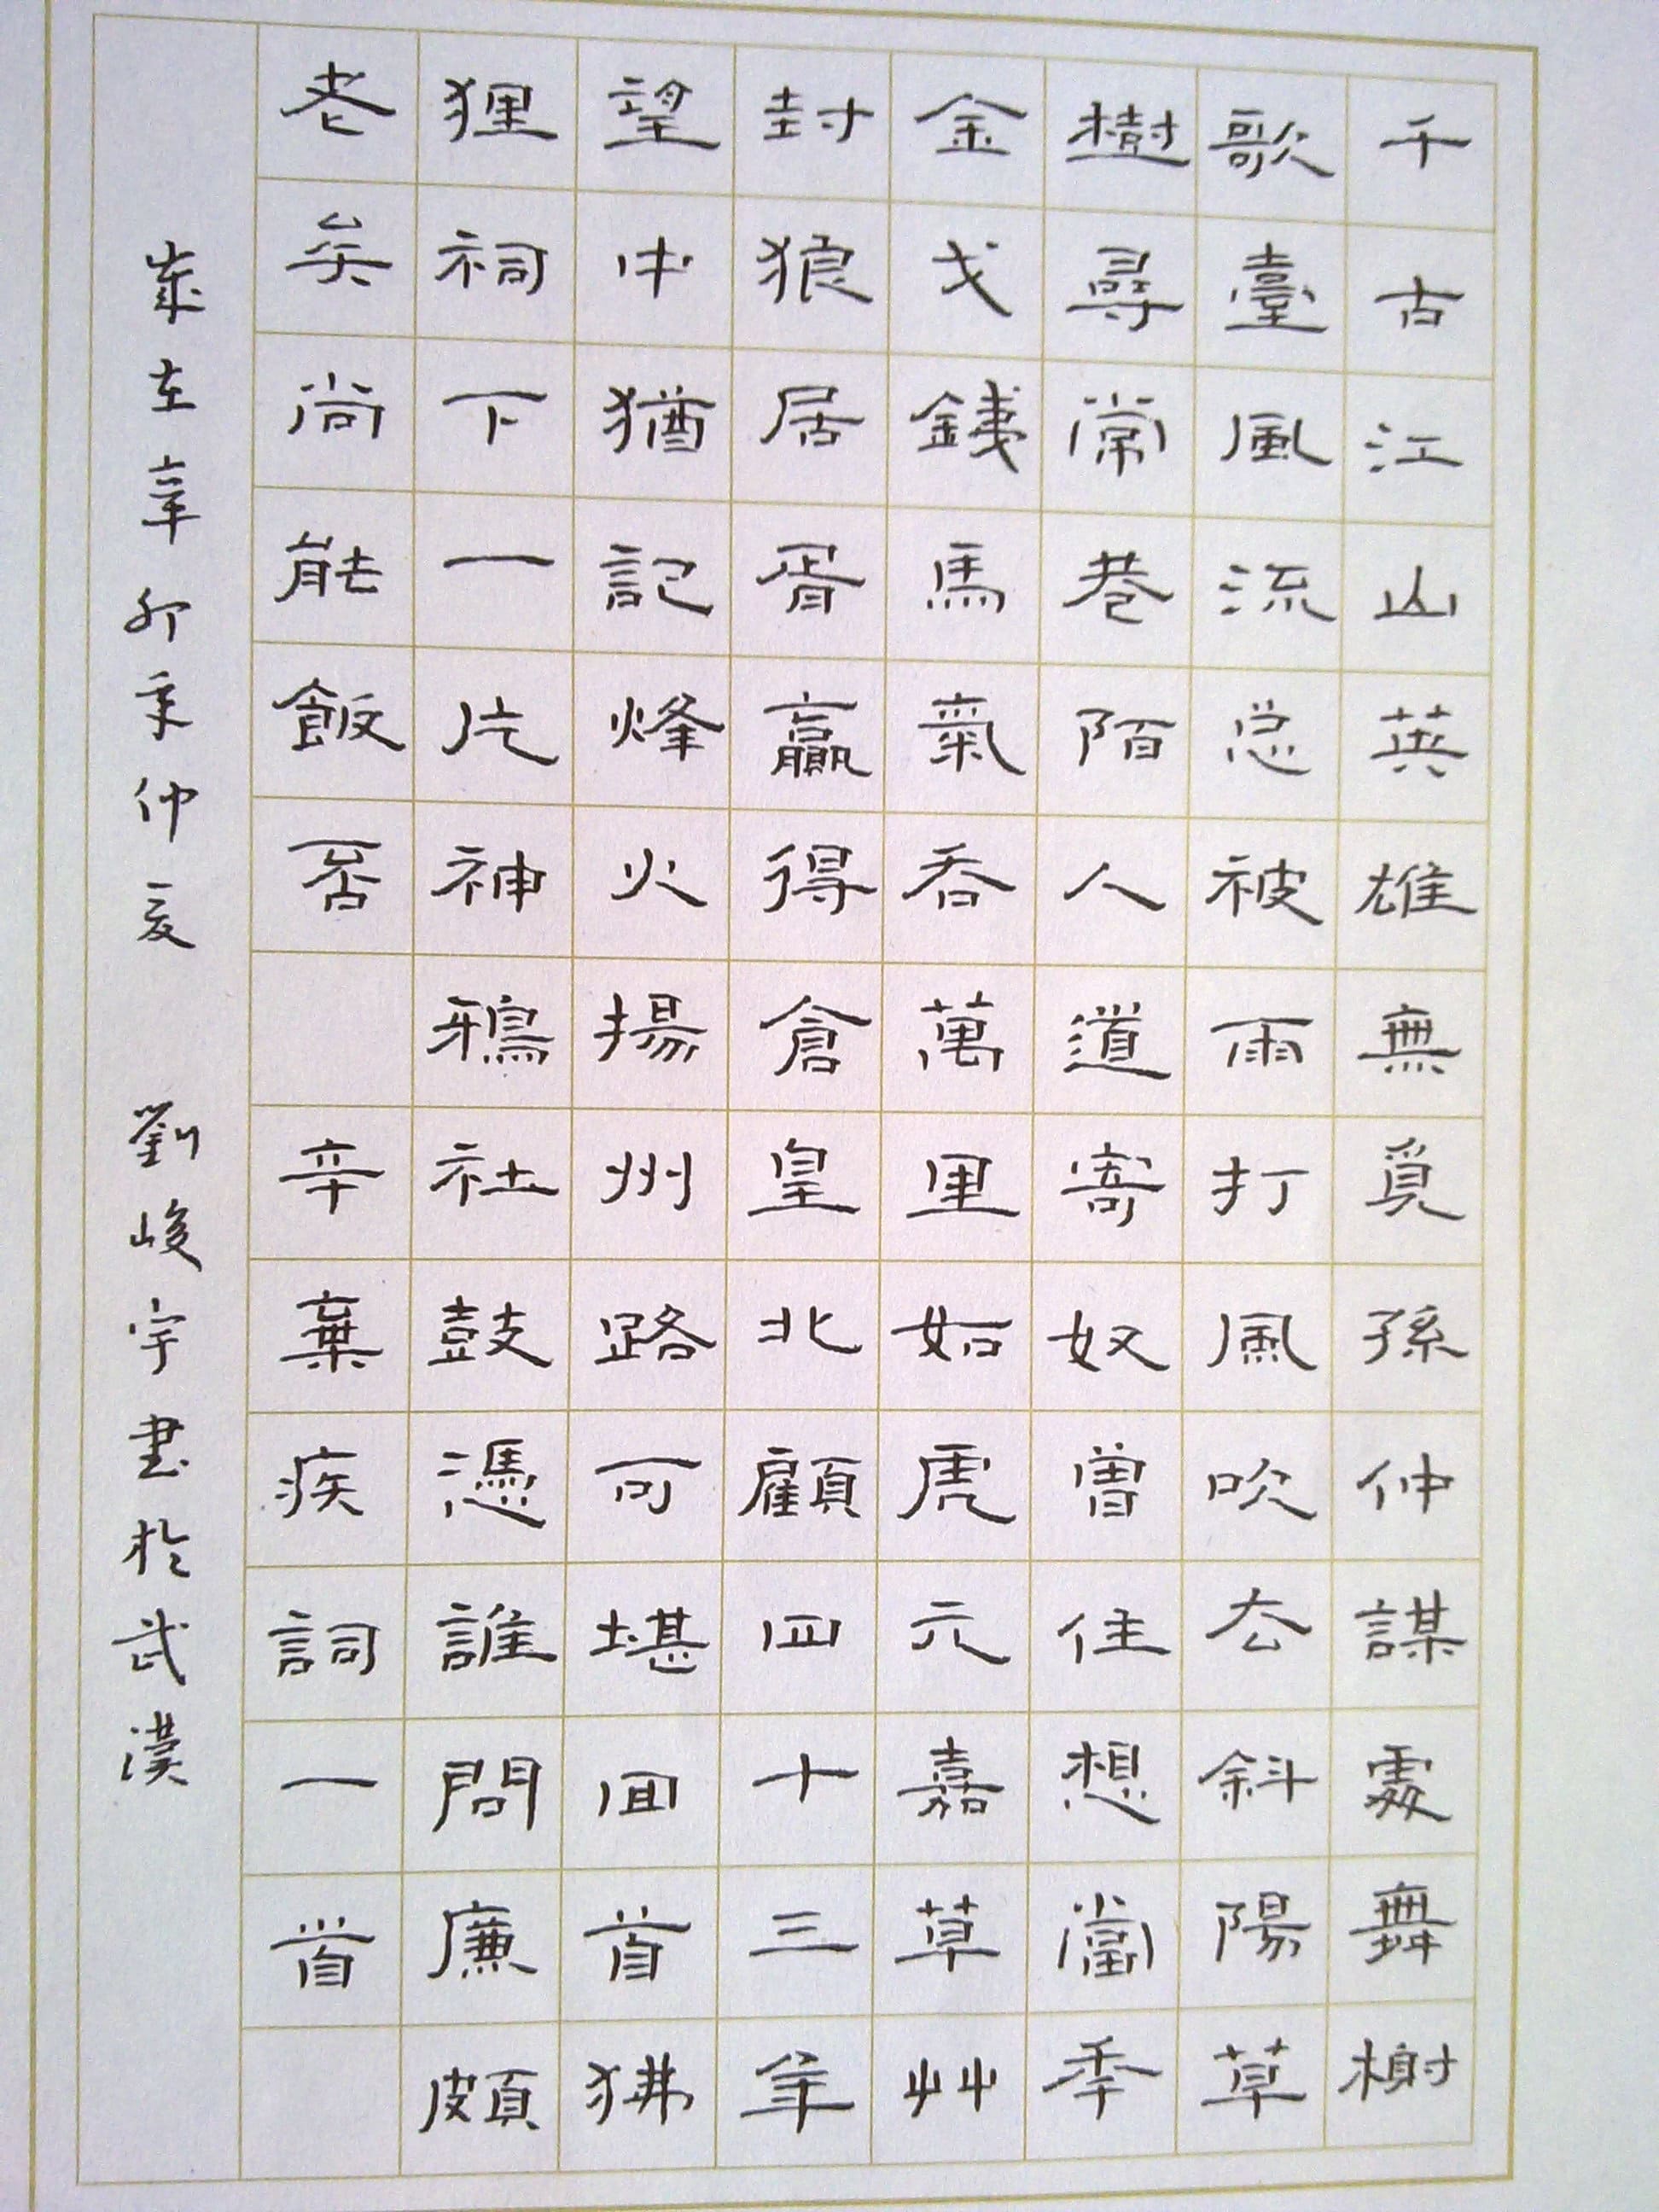 千古江山英雄無覓孫仲謀處舞榭
歌臺風流总被雨打風吹去斜陽草
樹尋常巷陌人道寄奴曾住想當秊
金戈錢馬氣吞萬里如虎元嘉草艸
封狼居胥贏得倉皇北顧四十三年
望中猶記烽火揚州路可堪回首狒
狸祠下一片神鴉社鼓憑誰問廉頗
老矣尚能飯否 辛棄疾詞一首
歲在辛卯年仲夏 劉峻宇書於武漢